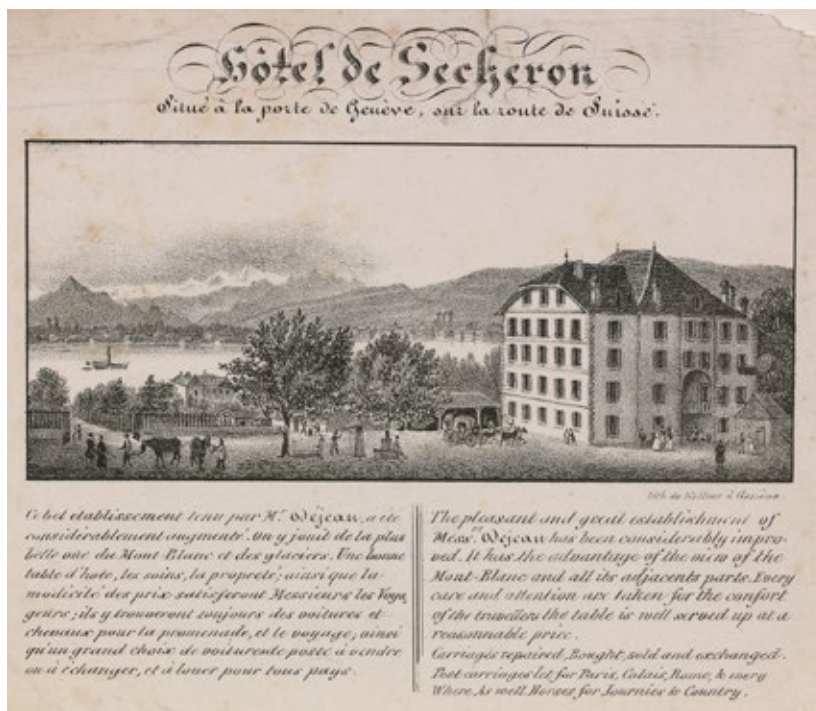 Hôtel de Secheron
Situé à la porte de Genève, sur la route de Suisse.
Lith. de Kellner à Genève.
Ce bel etablissement tenu par Mr. Dejean, a été
considérablement augmenté. On y jouit de la plus
belle vue du Mont Blanc et des glaciers. Une bonne
table d'hote, les soins, la propreté; ainsi que la
modicité des prix satisferont Messieurs les Voya
geurs; ils y trouveront toujours des voitures et
chevaux pour la promenade, et le voyage, ainsi
qu'un grand choix de voitures de poste à vendre
ou à échanger, et à louer pour tous pays.
The pleasant and great establishment of
Messrs. Dejean has been considerably impro-
ved. It has the advantage of the view of the
Mont-Blanc and all its adjacents parts. Every
care and attention are taken for the confort
of the travellers the table is well served up at a
reasonnable price.
Carriages repaired, Bought, sold and exchanged.
Post carriages let for Paris, Calais, Rome, & every
Where As well Horses for Journies & Country.